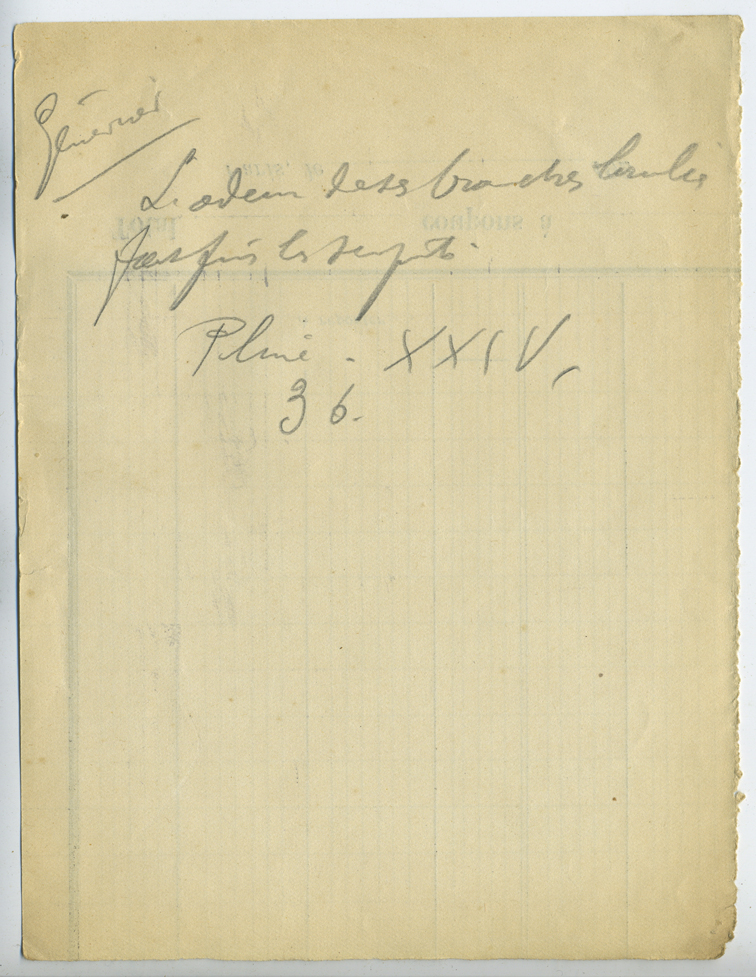 Génévrier
L'odeur de ses branches brulées
fait fuir les serpents.
Pline. XXIV,
36.